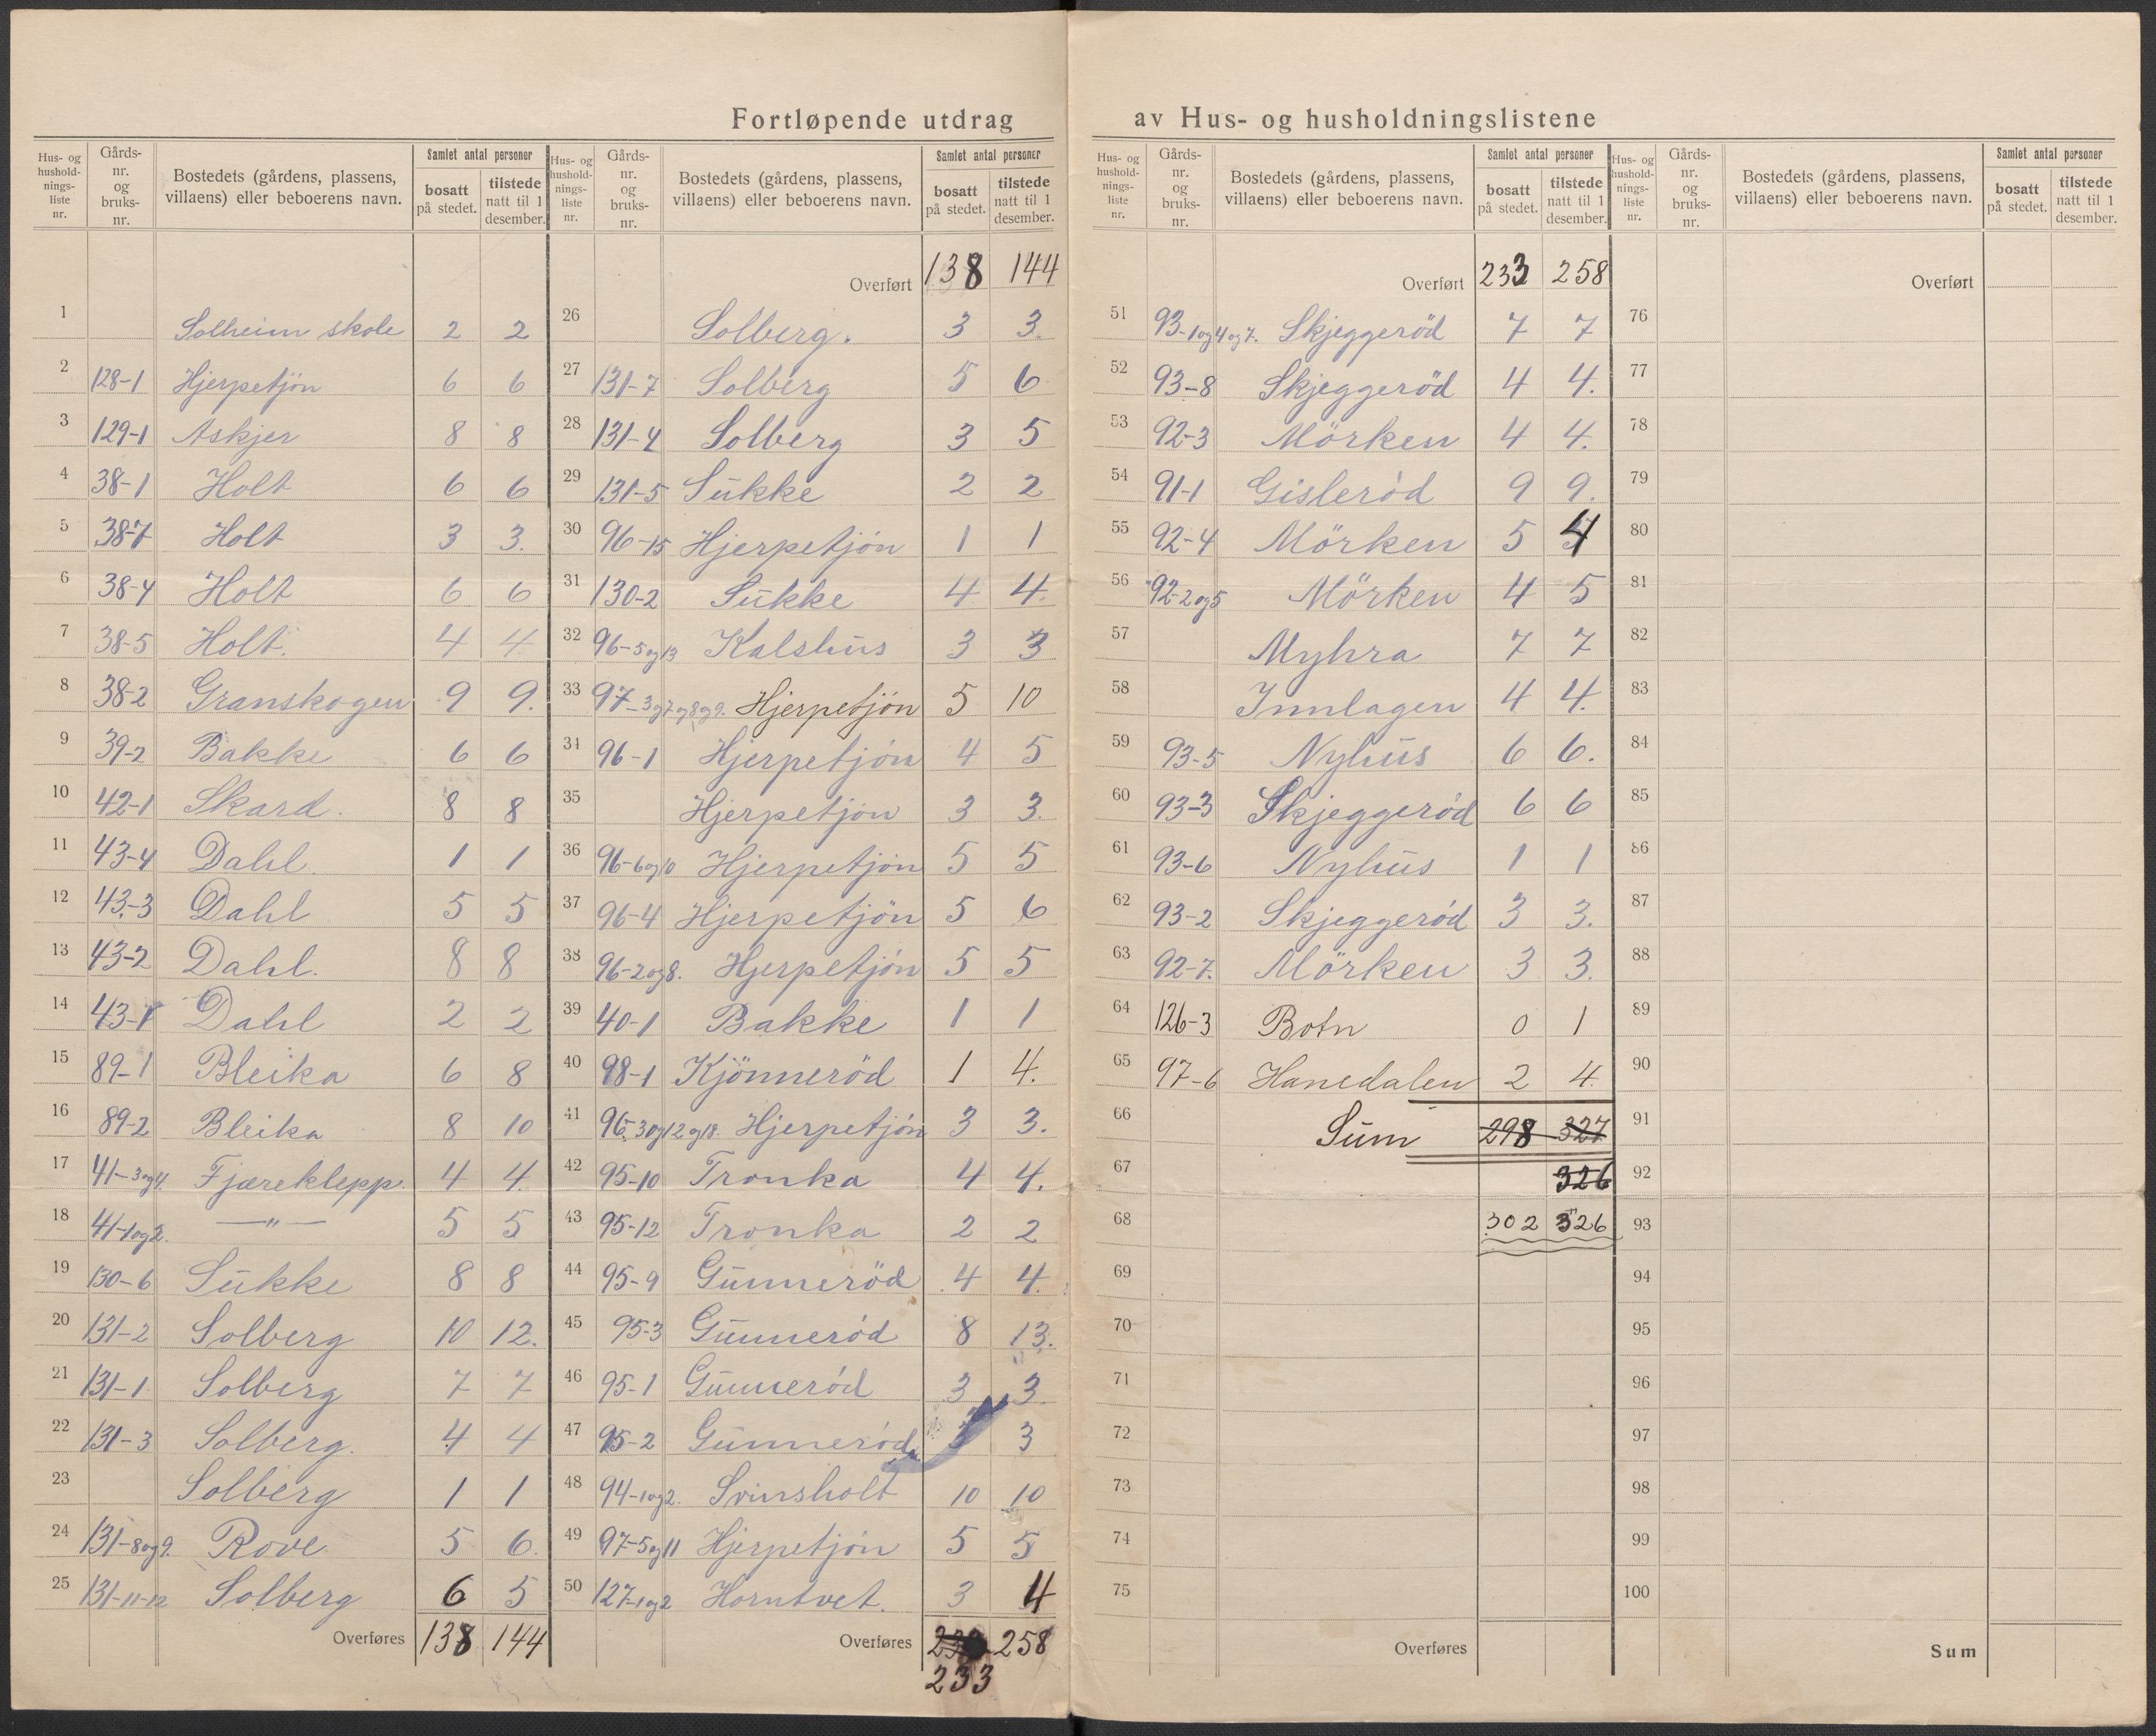 Fortløpende utdrag av Hus- og husholdningslistene
Hus- og hushold-nings-liste nr. Gårds-nr. og bruks-nr. Bostedets (gårdens, plassens, villaens) eller beboerens navn. Samlet antal personer bosatt på stedet. tilstede natt til 1 desember.
1 Solheim skole 2 2
2 128-1 Hjerpetjön 6 6
3 129-1 Askjer 8 8
4 38-1 Holt 6 6
5 38-7 Holt 3 3.
6 38-4 Holt 6 6
7 38-5 Holt. 4 4
8 38-2 Granskogen 9 9.
9 39-2 Bakke 6 6
10 42-1 Skard. 8 8
11 43-4 Dahl. 1 1
12 43-3 Dahl 5 5
13 43-2 Dahl. 8 8
14 43-1 Dahl 2 2
15 89-1 Bleika 6 8
16 89-2 Bleika 8 10
17 41-3og4. Fjæreklepp. 4 4.
18 41-1og2. —"— 5 5
19 130-6 Sukke 8 8
20 131-2 Solberg 10 12.
21 131-1 Solberg 7 7
22 131-3 Solberg. 4 4
23 Solberg 1 1
24 131-8og9. Rove 5 6.
25 131-11-12 Solberg 6 5
Overføres 138 144
Hus- og hushold-nings-liste nr. Gårds-nr. og bruks-nr. Bostedets (gårdens, plassens, villaens) eller beboerens navn. Samlet antal personer bosatt på stedet. tilstede natt til 1 desember.
Overført 138 144
26 Solberg. 3 3.
27 131-7 Solberg 5 6
28 131-4 Solberg 3 5
29 131-5 Sukke 2 2
30 96-15 Hjerpetjön 1 1
31 130-2 Sukke 4 4.
32 96-5og13 Kalshus 3 3
33 97-3og7og8og9. Hjerpetjön 5 10
34 96-1 Hjerpetjön 4 5
35 Hjerpetjön 3 3.
36 96-6og10 Hjerpetjön 5 5
37 96-4 Hjerpetjön 5 6
38 96-2og8. Hjerpetjön 5 5
39 40-1 Bakke 1 1
40 98-1 Kjönneröd 1 4.
41 96-3og12og18. Hjerpetjön 3 3.
42 95-10 Tronka 4 4.
43 95-12 Tronka 2 2
44 95-9 Gunneröd 4 4.
45 95-3 Gunneröd 8 13.
46 95-1 Gunneröd 3 3.
47 95-2 Gunneröd 3 3
48 94-1og2. Svinsholt 10 10
49 97-5og11 Hjerpetjön 5 5
50 127-1og2 Horntvet. 3 4
Overføres 258
233
Hus- og hushold-nings-liste nr. Gårds-nr. og bruks-nr. Bostedets (gårdens, plassens, villaens) eller beboerens navn. Samlet antal personer bosatt på stedet. tilstede natt til 1 desember.
Overført 233 258
51 93-1og4og7. Skjeggeröd 7 7
52 93-8 Skjeggeröd 4 4.
53 92-3 Mörken 4 4.
54 91-1 Gisleröd 9 9.
55 92-4 Mörken 5 4
56 92-2og5 Mörken 4 5
57 Myhra 7 7
58 Innlagen 4 4.
59 93-5 Nyhus 6 6.
60 93-3 Skjeggeröd 6 6
61 93-6 Nyhus 1 1
62 93-2 Skjeggeröd 3 3.
63 92-7. Mörken 3 3.
64 126-3 Botn 0 1
65 97-6 Hanedalen 2 4.
66 Sum 298 327
67 326
68 302 326
69
70
71
72
73
74
75
Overføres
Hus- og hushold-nings-liste nr. Gårds-nr. og bruks-nr. Bostedets (gårdens, plassens, villaens) eller beboerens navn. Samlet antal personer bosatt på stedet. tilstede natt til 1 desember.
Overført
76
77
78
79
80
81
82
83
84
85
86
87
88
89
90
91
92
93
94
95
96
97
98
99
100
Sum